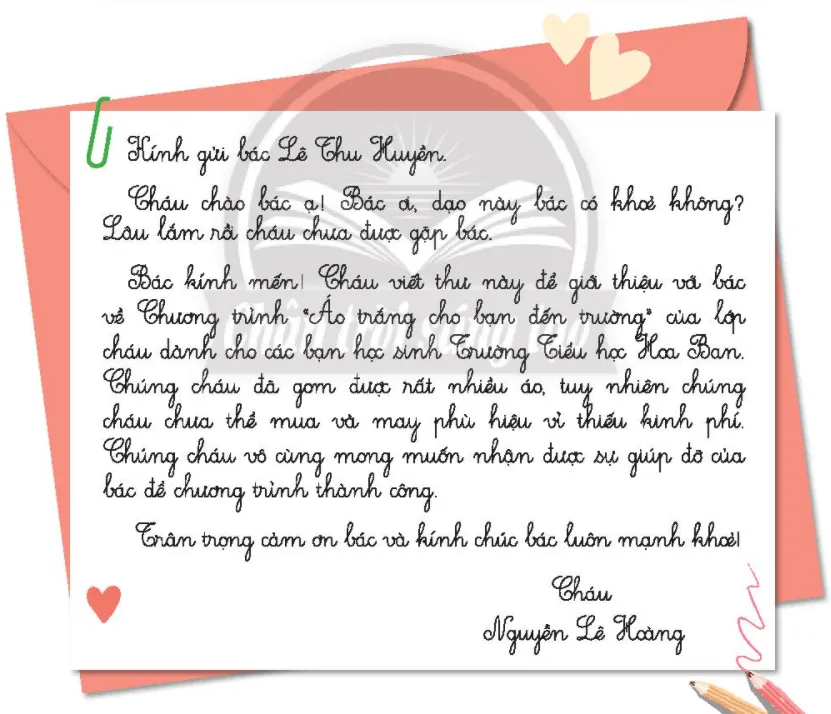 Kính gửi bác Lê Thu Huyền.
Cháu chào bác ạ! Bác ơi, dạo này bác có khoẻ không?
Lâu lắm rồi cháu chưa được gặp bác.
Bác kính mến! Cháu viết thư này để giới thiệu với bác
về Chương trình "Áo trắng cho bạn đến trường" của lớp
cháu dành cho các bạn học sinh Trường Tiểu học Hoa Ban.
Chúng cháu đã gom được rất nhiều áo, tuy nhiên chúng
cháu chưa thể mua và may phù hiệu vì thiếu kinh phí.
Chúng cháu vô cùng mong muốn nhận được sự giúp đỡ của
bác để chương trình thành công.
Trân trọng cảm ơn bác và kính chúc bác luôn mạnh khoẻ!
Cháu
Nguyễn Lê Hoàng
Chân trời sáng tạo